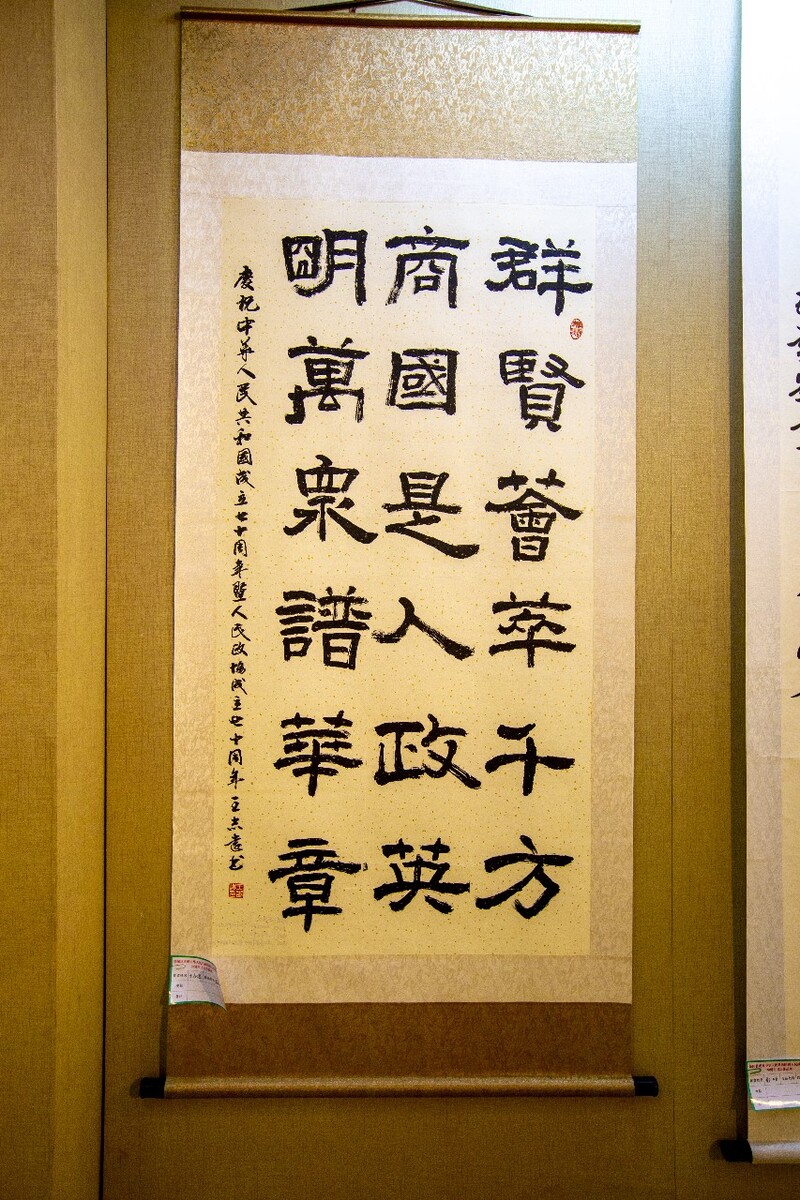 群賢薈萃千方
商國是人政英
明萬眾譜華章
慶祝中華人民共和國成立七十周年暨人民政協成立七十周年 王志遠书